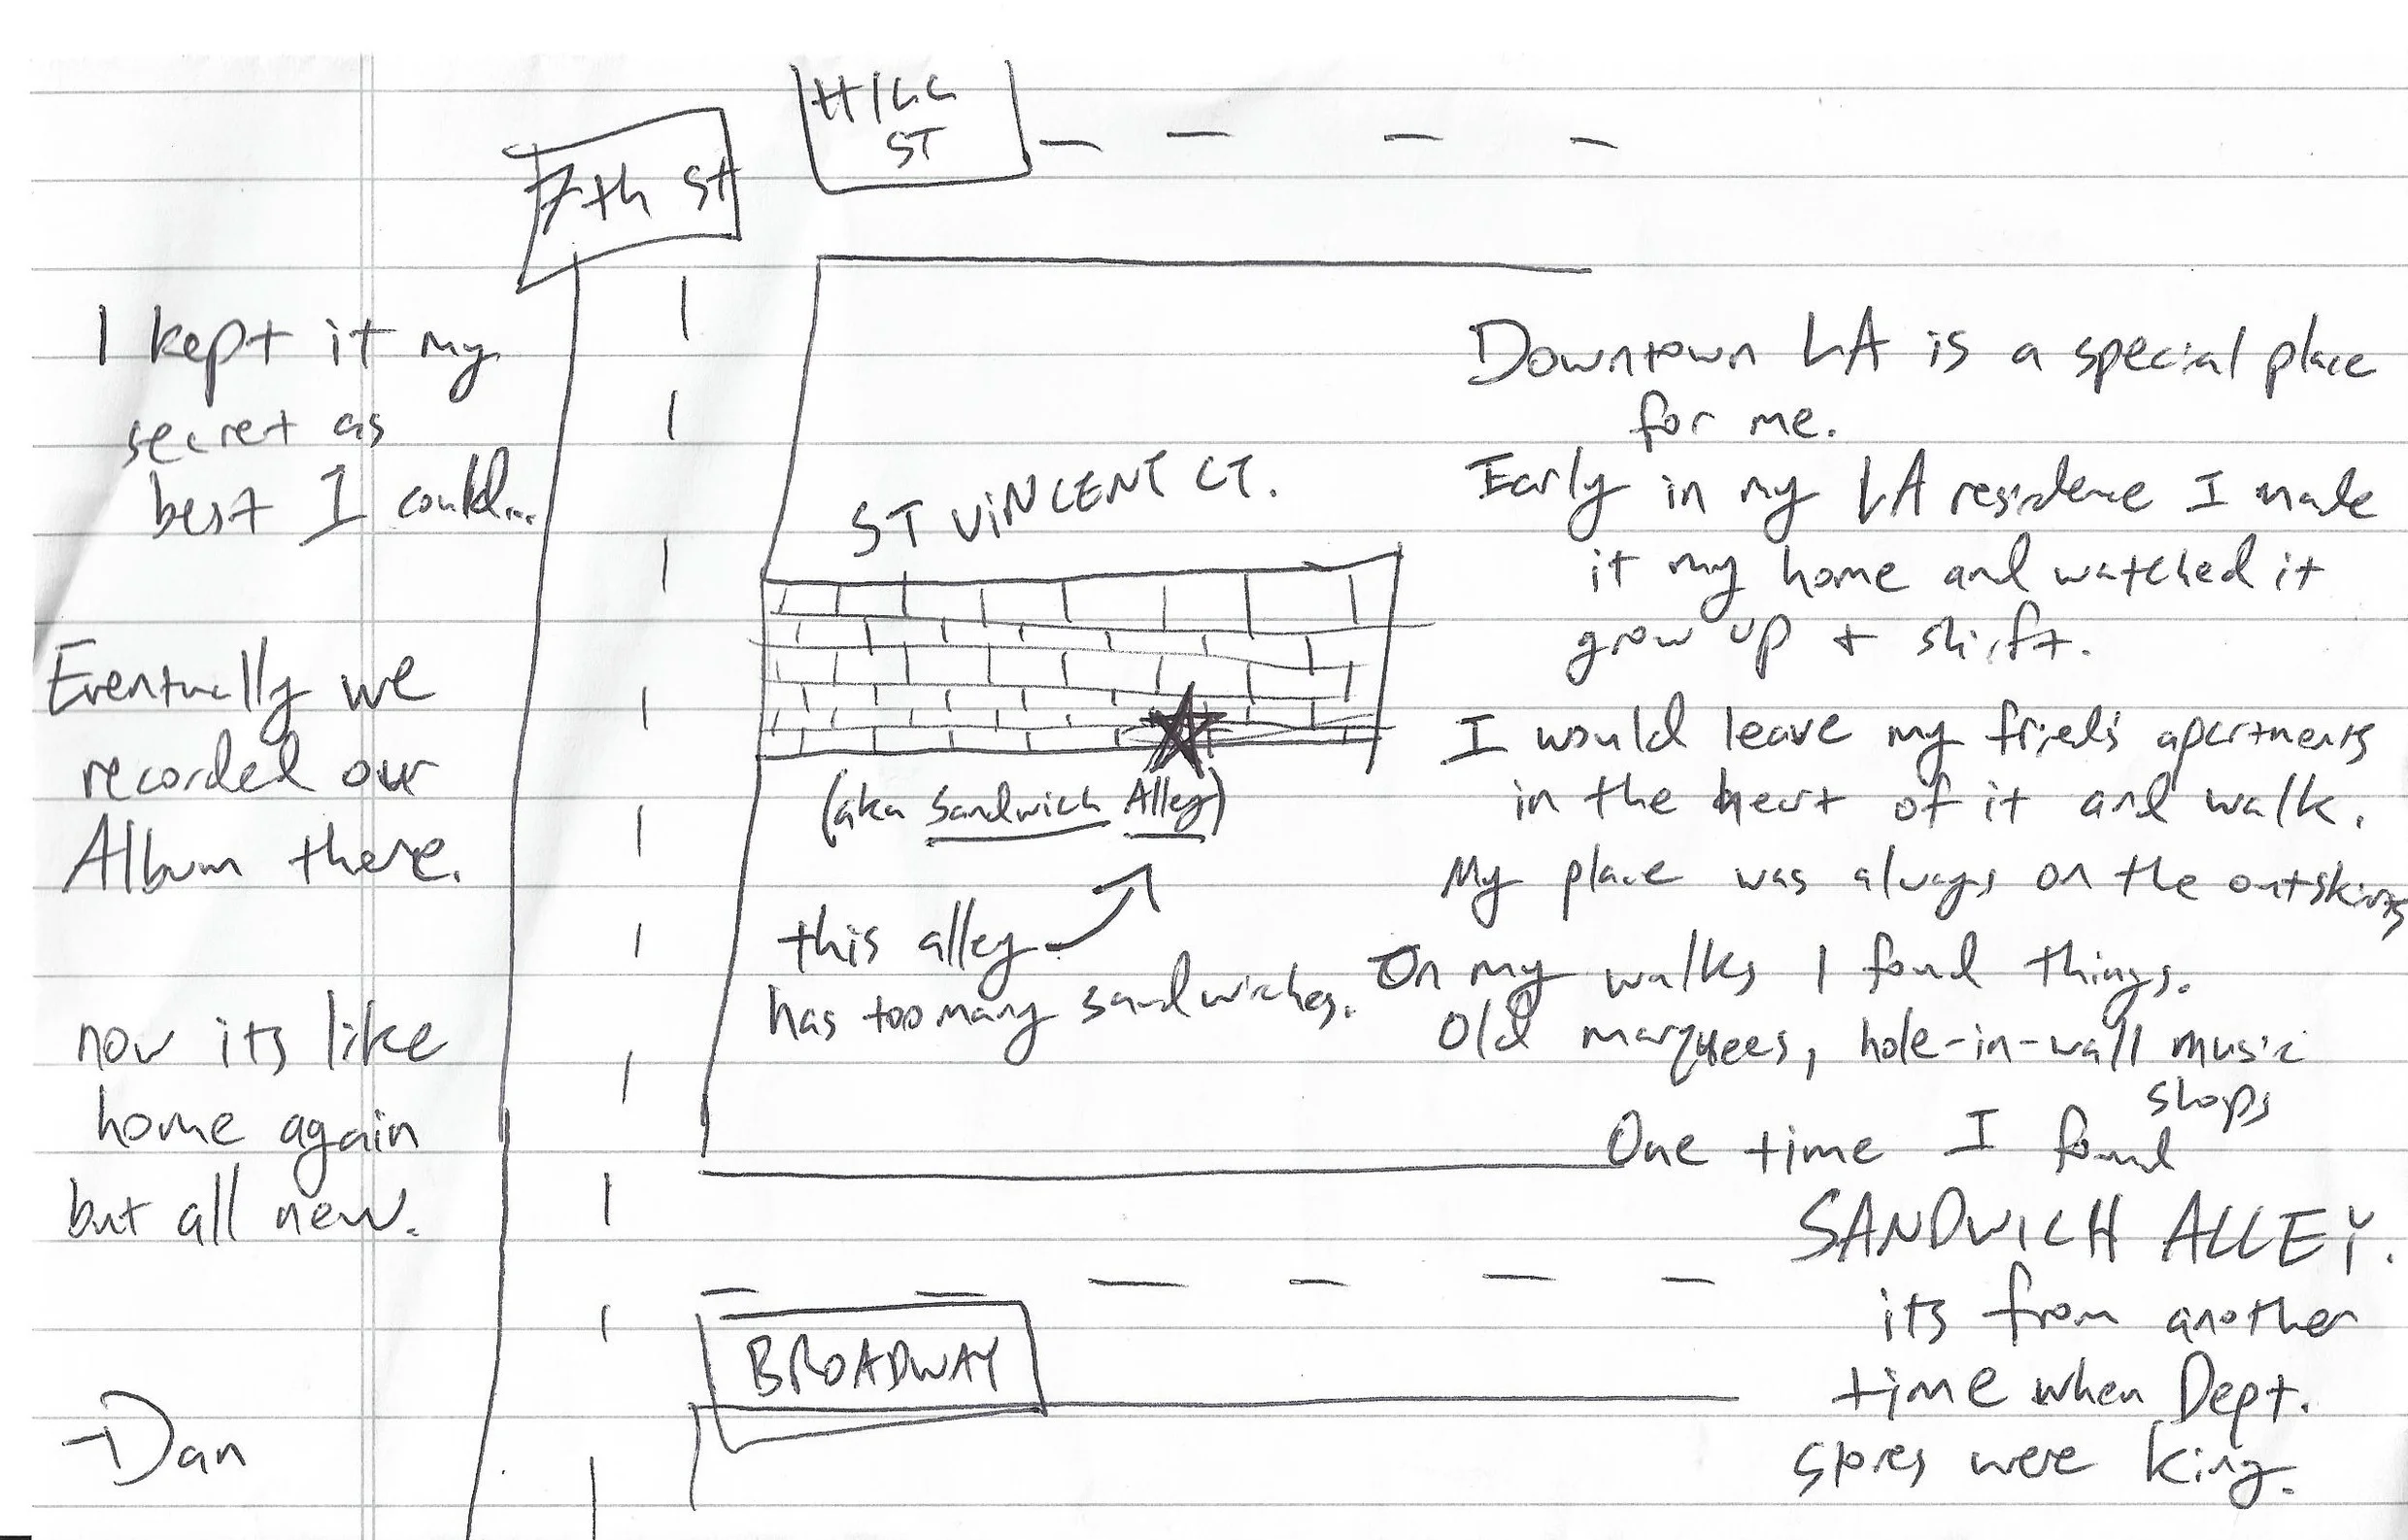 HILL
ST
7th St
ST VINCENT CT.
(aka Sandwich Alley)
this alley
has too many sandwiches.
BROADWAY
Downtown LA is a special place
for me.
Early in my LA residence I made
it my home and watched it
grow up + shift.
I would leave my fried's apartments
in the heart of it and walk.
My place was always on the outskirts
On my walks I found things.
Old marquees, hole-in-wall music
shops
One time I found
SANDWICH ALLEY.
its from another
time when Dept.
stores were king.
I kept it my
secret as
best I could...
Eventually we
recorded our
Album there.
now its like
home again
but all new.
-Dan